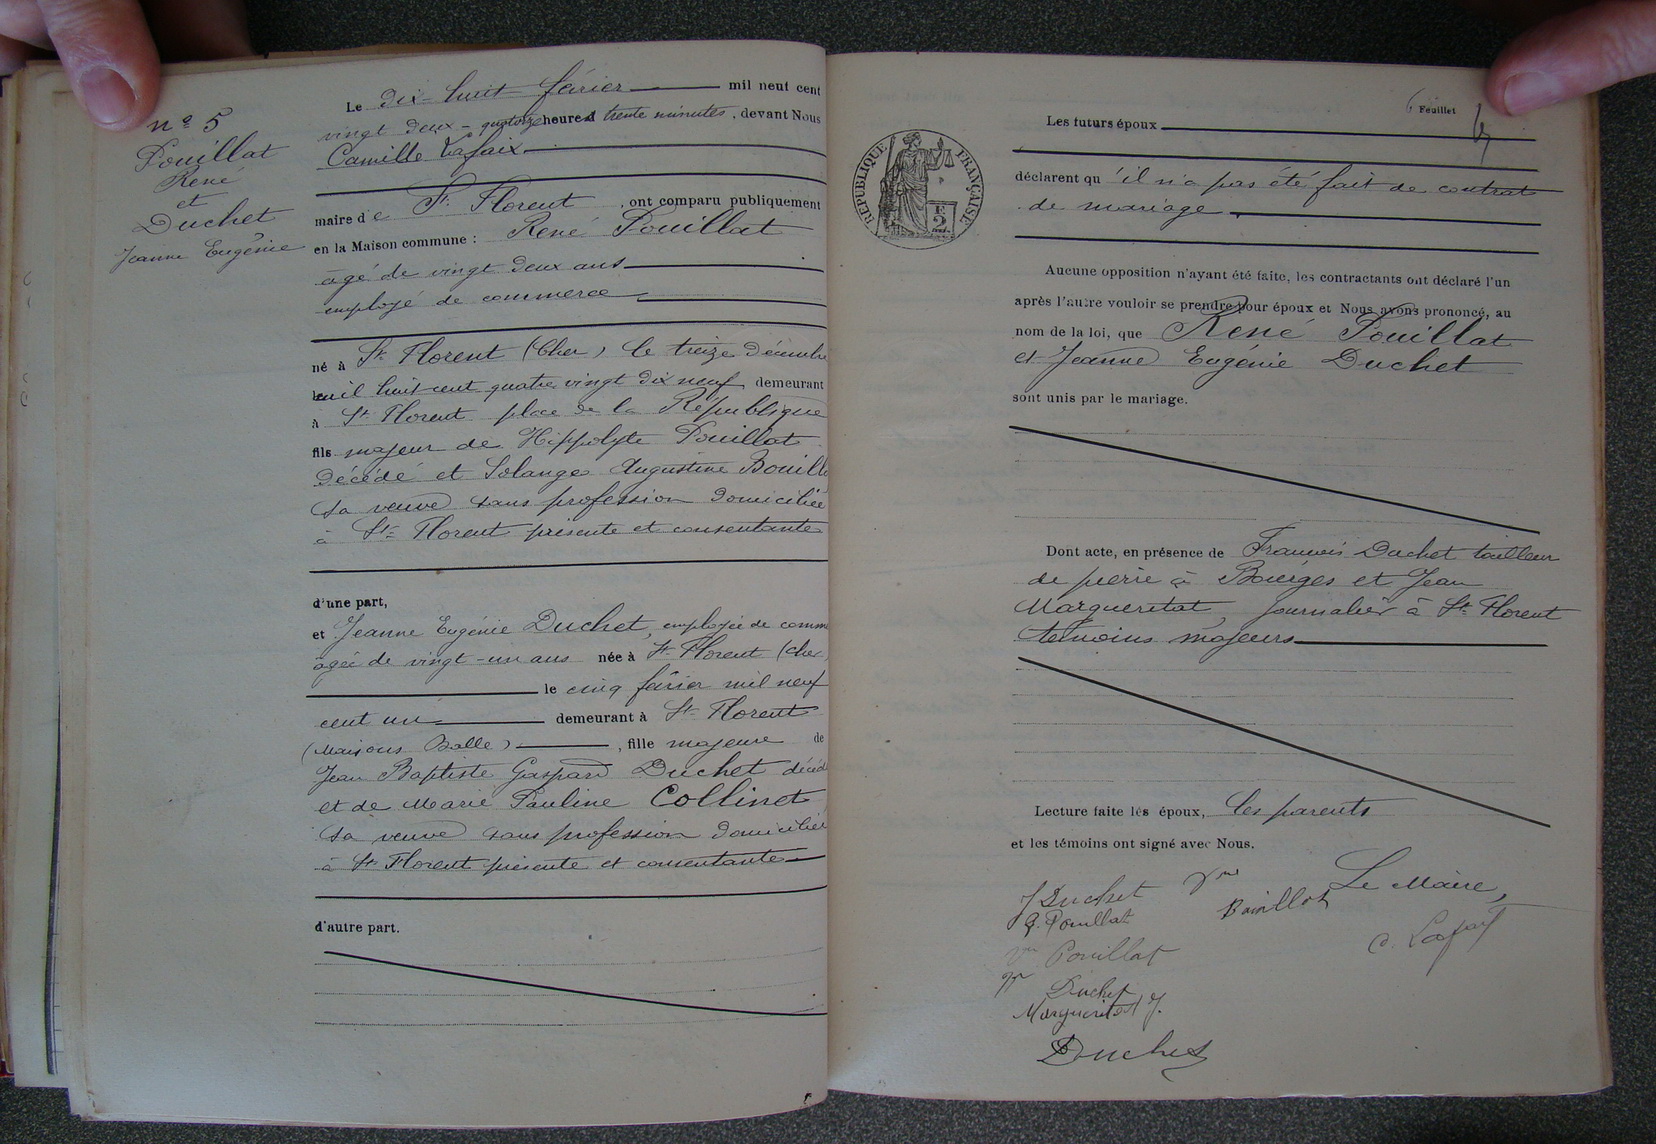 n° 5
Pouillat
René
et
Duchet
Jeanne Eugénie
Le dix-huit février mil neuf cent
vingt deux - quatorze heures trente minutes, devant Nous
Camille Lafaix
maire de St Florent, ont comparu publiquement
en la Maison commune : René Pouillat
âgé de vingt deux ans
employé de commerce
né à St Florent (Cher) le treize décembre
mil huit cent quatre vingt dix neuf, demeurant
à St Florent place de la République
fils majeur de Hippolyte Pouillat
décédé et Solange Augustine Bouill
sa veuve sans profession domiciliée
à St Florent présente et consentante
d'une part,
et Jeanne Eugénie Duchet, employée de comm
âgée de vingt-un ans née à St Florent (Cher
le cinq février mil neuf
cent un demeurant à St Florent
(Maisons Balle), fille majeure de
Jean Baptiste Gaspard Duchet décéd
et de Marie Pauline Collinet
sa veuve sans profession domiciliée
à St Florent présente et consentante
d'autre part.
Feuillet
RÉPUBLIQUE FRANÇAISE
Les futurs époux
déclarent qu'il n'a pas été fait de contrat
de mariage.
Aucune opposition n'ayant été faite, les contractants ont déclaré l'un
après l'autre vouloir se prendre pour époux et Nous avons prononcé, au
nom de la loi, que René Pouillat
et Jeanne Eugénie Duchet
sont unis par le mariage.
Dont acte, en présence de François Duchet tailleur
de pierre à Bourges et Jean
Margueritat, journalier à St Florent
témoins majeurs
Lecture faite les époux, les parents
et les témoins ont signé avec Nous.
J Duchet
Le Maire,
Pouillat
Bouillot
C. Lafaix
Vve Pouillat
Duchet
Margueritat J.
Duchet